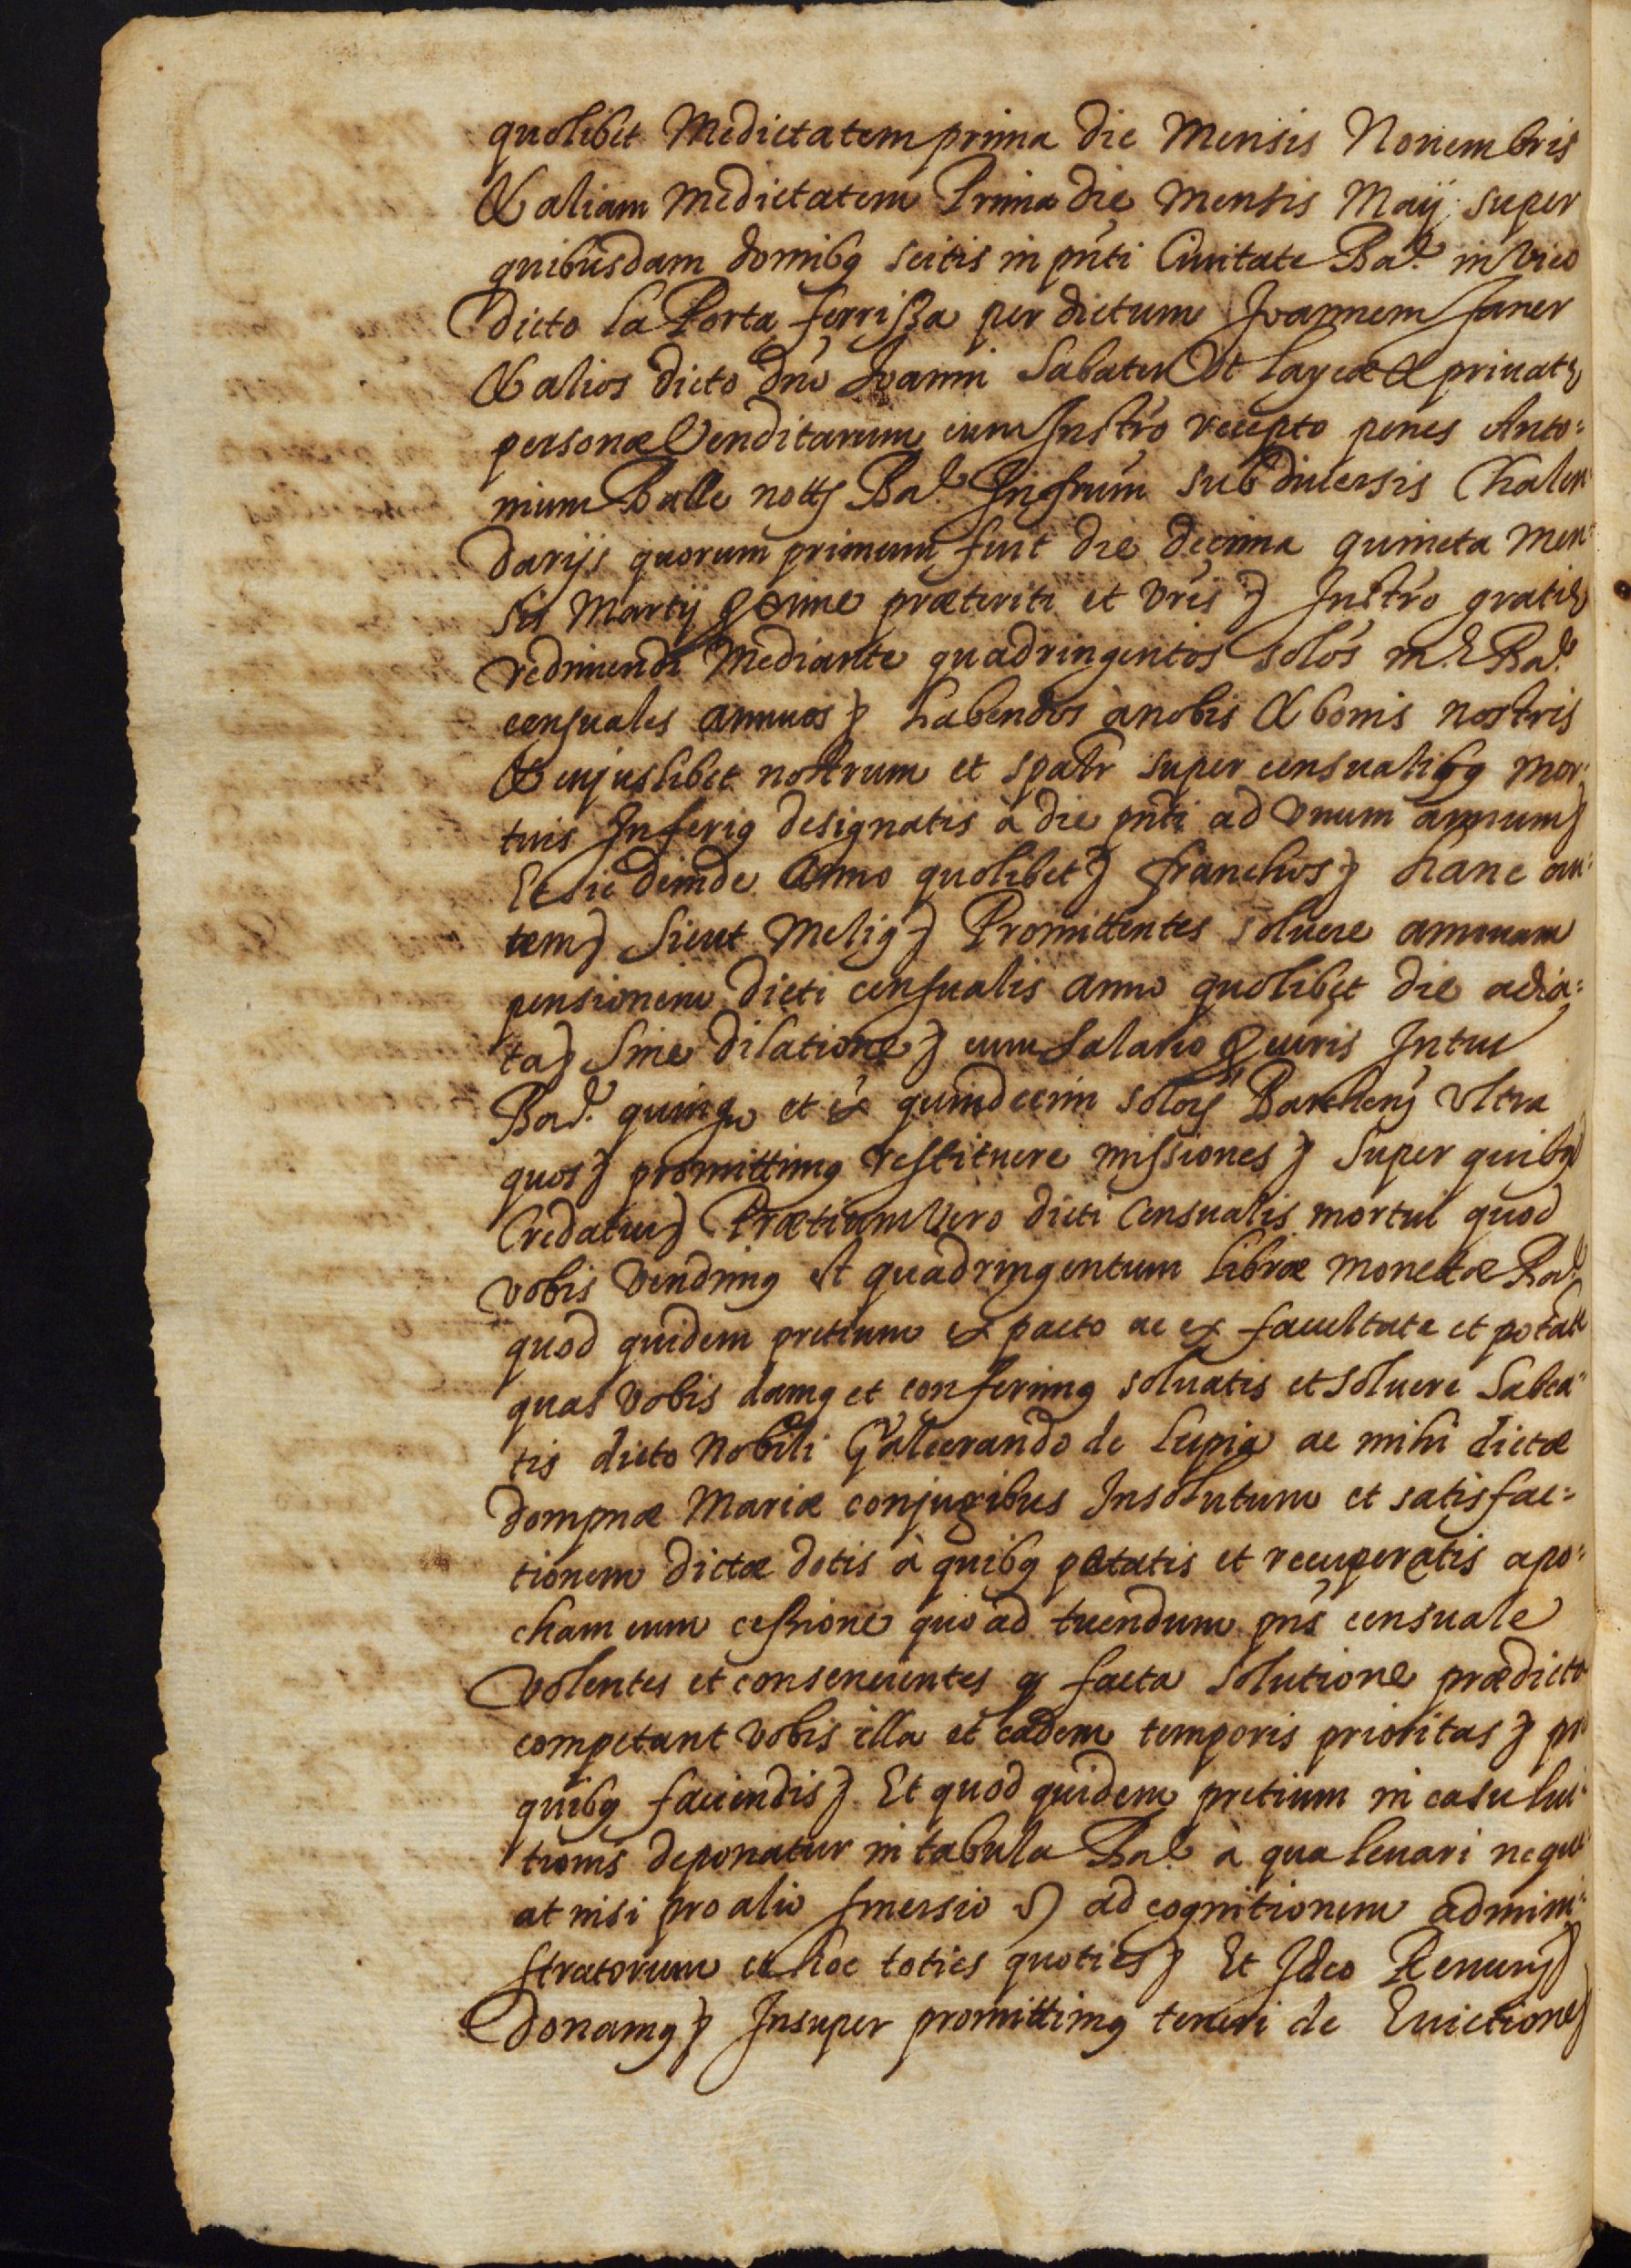 quolibet Medietatem prima die Mensis Nouembris
& aliam medietatem Prima die mensis Maÿ super
quibusdam domibꝫ scitis in pñti Ciuitate Baʳ. in Vico
dicto la Porta ferrissa per dictum Joannem Janer
& alios dicto dño Joanni Sabater Vt laycæ & priuatæ
personæ Venditarum cum Instro recepto penes Anto:
nium Batlle notꝫ Baʳ. Infrum sub diuersis Chalen:
darijs quorum primum fuit die decima quincta Men:
sis Martij prime præteriti et vris ꝫ Instro gratiæ
redimendi Mediante quadringentos solos m. Baʳ.
censuales annuos ꝫ habendos à nobis & bonis nostris
& cujuslibet nostrum et spalr super censualibꝫ mor:
tuis Inferiꝫ designatis à die pñti ad Vnum annum ꝫ
Et sic deinde Anno quolibet ꝫ franchos ꝫ hanc au:
tem ꝫ Sicut Meliꝫ ꝫ Promittentes soluere annuam
pensionem dicti censualis anno quolibet die adia:
ta ꝫ Sine dilatione ꝫ cum Salario ꝓcuris Intus
Baʳ. quinqꝫ et ex quindecim solos Barchenꝫ Vltra
quos ꝫ promittimꝫ restituere missiones ꝫ Super quibꝫ
Credatur ꝫ Prætium Vero dicti Censualis mortui quod
vobis Vendimꝫ est quadringentum libræ monetæ Baʳ.
quod quidem pretium ex pacto ac ex facultate et potate
quas Vobis damꝫ et conferimꝫ soluatis et soluere habea:
tis dicto Nobili Galcerando de Lupia ac mihi dictæ
dompnæ Mariæ conjugibus Insolutum et satisfac:
tionem dictæ dotis à quibꝫ petatis et recuperatis apo:
cham cum cessione quo ad tuendum pñs censuale
Volentes et consencientes qꝫ facta solutione prædicta
competant Vobis illa et eadem temporis prioritas ꝫ pro
quibꝫ faciendis ꝫ Et quod quidem pretium in casu lui:
tionis deponatur in tabula Baʳ. à qua leuari neque:
at nisi pro alio smersio ꝫ ad cognitionem admini:
stratorum et hoc toties quoties ꝫ Et Ideo Renunꝫ
donamꝫ ꝫ Insuper promittimꝫ teneri de Euictione ꝫ